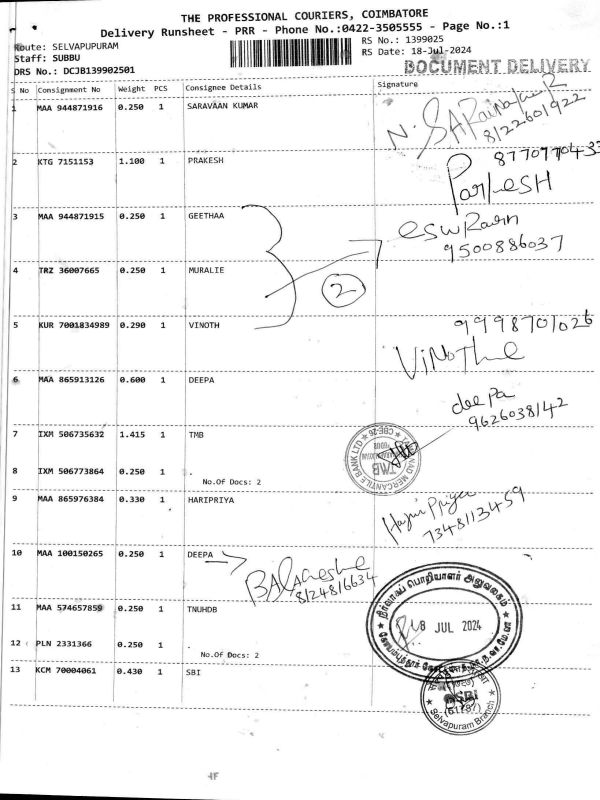 THE PROFESSIONAL COURIERS, COIMBATORE
Delivery Runsheet - PRR - Phone No.:0422-3505555 - Page No.:1
Route: SELVAPUPURAM
RS No.: 1399025
Staff: SUBBU
RS Date: 18-Jul-2024
DRS No.: DCJB139902501
DOCUMENT DELIVERY
S No Consignment No Weight PCS Consignee Details Signature
1 MAA 944871916 0.250 1 SARAVAAN KUMAR
8122601922
2 KTG 7151153 1.100 1 PRAKESH
ParkesH
3 MAA 944871915 0.250 1 GEETHAA
9500886037
4 TRZ 36007665 0.250 1 MURALIE
2
5 KUR 7001834989 0.290 1 VINOTH
9998701026
6 MAA 865913126 0.600 1 DEEPA
deepa
9626038142
7 IXM 506735632 1.415 1 TMB
8 IXM 506773864 0.250 1 .
No.Of Docs: 2
TMB
9 MAA 865976384 0.330 1 HARIPRIYA
Haripriya
7348113459
10 MAA 100150265 0.250 1 DEEPA
8124816634
11 MAA 574657859 0.250 1 TNUHDB
நிர்வாகப் பொறியாளர் அலுவலகம்
8 JUL 2024
12 PLN 2331366 0.250 1 .
No.Of Docs: 2
13 KCM 70004061 0.430 1 SBI
SBI
Selvapuram Branch